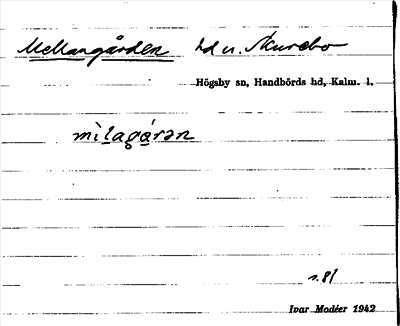 Mellangården hd u. Skurebo
Högsby sn, Handbörds hd, Kalm. l.
mìlagá̱rən
s. 81
Ivar Modéer 1942